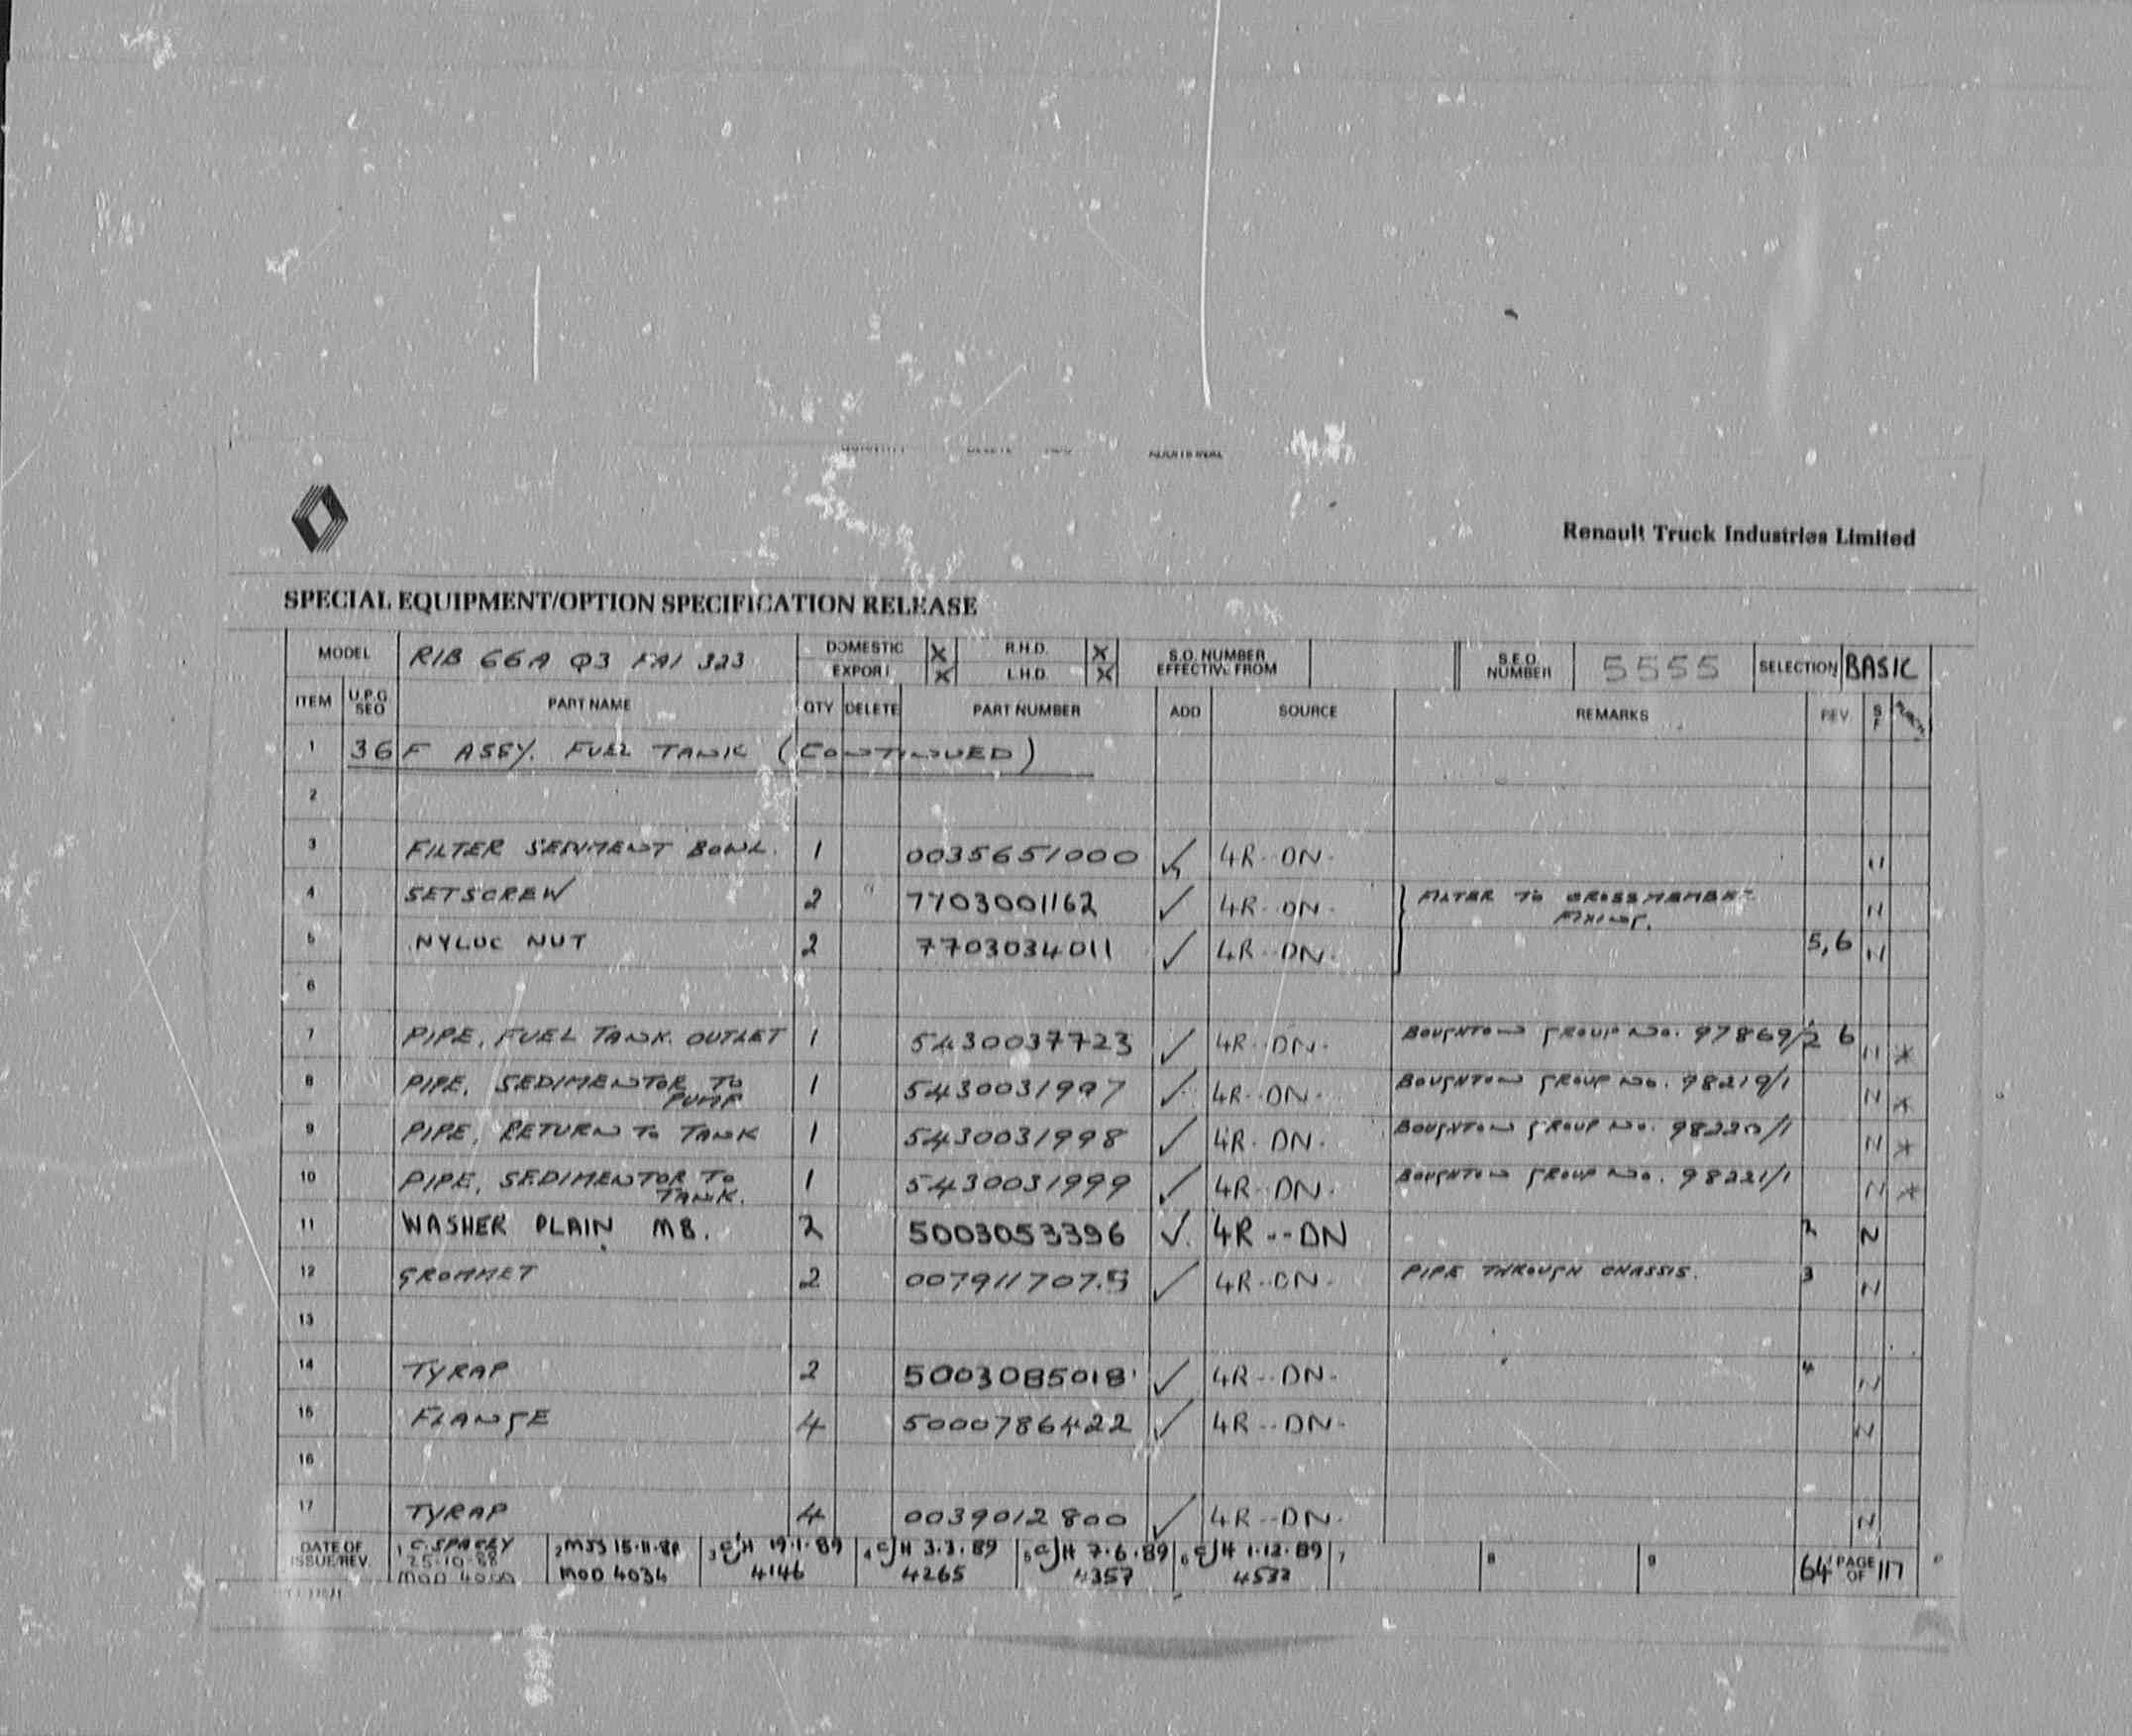 Renault Truck Industries Limited
SPECIAL EQUIPMENT/OPTION SPECIFICATION RELEASE
MODEL RIB 66A Q3 FAI 323 DOMESTIC X R.H.D. X S.O. NUMBER EFFECTIVE FROM S.E.O. NUMBER 5555 SELECTION BASIC
EXPORT X L.H.D. X
ITEM U.P.G SEQ PART NAME QTY DELETE PART NUMBER ADD SOURCE REMARKS REV S F
1 36 F ASSY. FUEL TANK (CONTINUED)
2
3 FILTER SEDIMENT BOWL. 1 0035651000 ✓ 4R--DN- N
4 SETSCREW 2 7703001162 ✓ 4R--DN- FILTER TO CROSSMEMBER FIXING. N
5 NYLOC NUT 2 7703034011 ✓ 4R--DN- 5,6 N
6
7 PIPE, FUEL TANK OUTLET 1 5430037723 ✓ 4R--DN- BOUGHTON GROUP NO. 97869/2 6 N *
8 PIPE, SEDIMENTOR TO PUMP 1 5430031997 ✓ 4R--DN- BOUGHTON GROUP NO. 98219/1 N *
9 PIPE, RETURN TO TANK 1 5430031998 ✓ 4R--DN- BOUGHTON GROUP NO. 98220/1 N *
10 PIPE, SEDIMENTOR TO TANK. 1 5430031999 ✓ 4R--DN- BOUGHTON GROUP NO. 98221/1 N *
11 WASHER PLAIN M8. 2 5003053396 ✓ 4R--DN 2 N
12 GROMMET 2 0079117075 ✓ 4R--DN- PIPE THROUGH CHASSIS. 3 N
13
14 TYRAP 2 5003085018 ✓ 4R--DN- 4 N
15 FLANGE 4 5000786422 ✓ 4R--DN- N
16
17 TYRAP 4 0039012800 ✓ 4R--DN- N
DATE OF ISSUE/REV. 1 C. SPAREY 25-10-88 MOD 2 MJS 15-11-88 MOD 4034 3 CJH 19-1-89 4146 4 CJH 3.3.89 4265 5 CJH 7.6.89 4357 6 CJH 1.12.89 7 8 9 64 PAGE OF 117